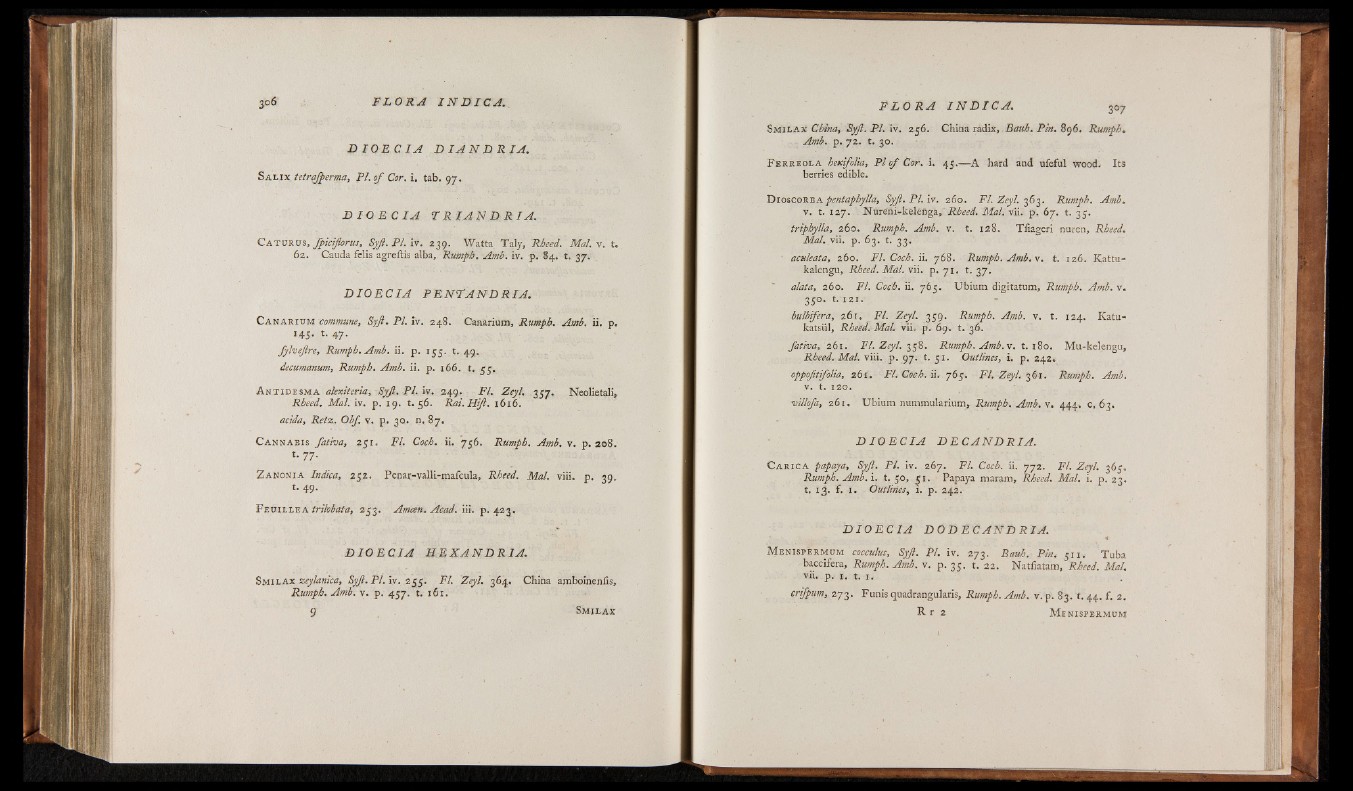 306 FLORA INDICA.
DIOECIA DIANDRIA.
SALIX tetraſperma, Pl. of Cor. i. tab. 97.
DIOECIA TRIANDRIA.
CATURUS, ſpiciflorus, Syſt. Pl. iv. 239. Watta Taly, Rheed. Mal. v. t.
62. Cauda felis agreſtis alba, Rumph. Amb. iv. p. 84. t. 37.
DIOECIA PENTANDRIA.
CANARIUM commune, Syſt. Pl. iv. 248. Canarium, Rumph. Amb. ii. p.
145. t. 47.
ſylveſtre, Rumph. Amb. ii. p. 155. t. 49.
decumanum, Rumph. Amb. ii. p. 166. t. 55.
ANTIDESMA alexiteria, Syſt. Pl. iv. 249. Fl. Zeyl. 357. Neolietali,
Rheed. Mal. iv. p. 19. t. 56. Rai. Hiſt. 1616.
acida, Retz. Obſ. v. p. 30. n. 87.
CANNABIS ſativa, 251. Fl. Coch. ii. 756. Rumph. Amb. v. p. 208.
t. 77.
ZANONIA Indica, 252. Penar-valli-maſcula, Rheed. Mal. viii. p. 39.
t. 49.
FEUILLEA trilobata, 253. Amœn. Acad. iii. p. 423.
DIOECIA HEXANDRIA.
SMILAX zeylanica, Syſt. Pl. iv. 255. Fl. Zeyl. 364. China amboinenſis,
Rumph. Amb. v. p. 457. t. 161.
9 SMILAX
FLORA INDICA. 307
SMILAX China, Syſt. Pl. iv. 256. China radix, Bauh. Pin. 896. Rumph.
Amb. p. 72. t. 30.
FERREOLA hexifolia, Pl of Cor. i. 45.—A hard and uſeful wood. Its
berries edible.
DIOSCOREA pentaphylla, Syſt. Pl. iv. 260. Fl. Zeyl. 363. Rumph. Amb.
v. t. 127. Nureni-kelenga, Rheed. Mal. vii. p. 67. t. 35.
triphylla, 260. Rumph. Amb. v. t. 128. Tſiageri nuren, Rheed.
Mal. vii. p. 63. t. 33.
aculeata, 260. Fl. Coch. ii. 768. Rumph. Amb. v. t. 126. Kattu-
kalengu, Rheed. Mal. vii. p. 71. t. 37.
alata, 260. Fl. Coch. ii. 765. Ubium digitatum, Rumph. Amb. v.
350. t. 121.
bulbifera, 261. Fl. Zeyl. 359. Rumph. Amb. v. t. 124. Katu-
katsiil, Rheed. Mal. vii. p. 69. t. 36.
ſativa, 261. Fl. Zeyl. 358. Rumph. Amb. v. t. 180. Mu-kelengu,
Rheed. Mal. viii. p. 97. t. 51. Outlines, i. p. 242.
oppoſitifolia, 261. Fl. Coch. ii. 765. Fl. Zeyl. 361. Rumph. Amb.
v. t. 120.
villoſa, 261. Ubium nummularium, Rumph. Amb. v. 444. c. 63.
DIOECIA DECANDRIA.
CARICA papaya, Syſt. Pl. iv. 267. Fl. Coch. ii. 772. Fl. Zeyl. 365.
Rumph. Amb. i. t. 50, 51. Papaya maram, Rheed. Mal. i. p. 23.
t. 13. f. 1. Outlines, i. p. 242.
DIOECIA DODECANDRIA.
MENISPERMUM cocculus, Syſt. Pl. iv. 273. Bauh. Pin. 511. Tuba
baccifera, Rumph. Amb. v. p. 35. t. 22. Natſiatam, Rheed. Mal.
vii. p. 1. t. 1.
criſpum, 273. Funis quadrangularis, Rumph. Amb. v. p. 83. t. 44. f. 2.
R r 2 MENISPERMUM